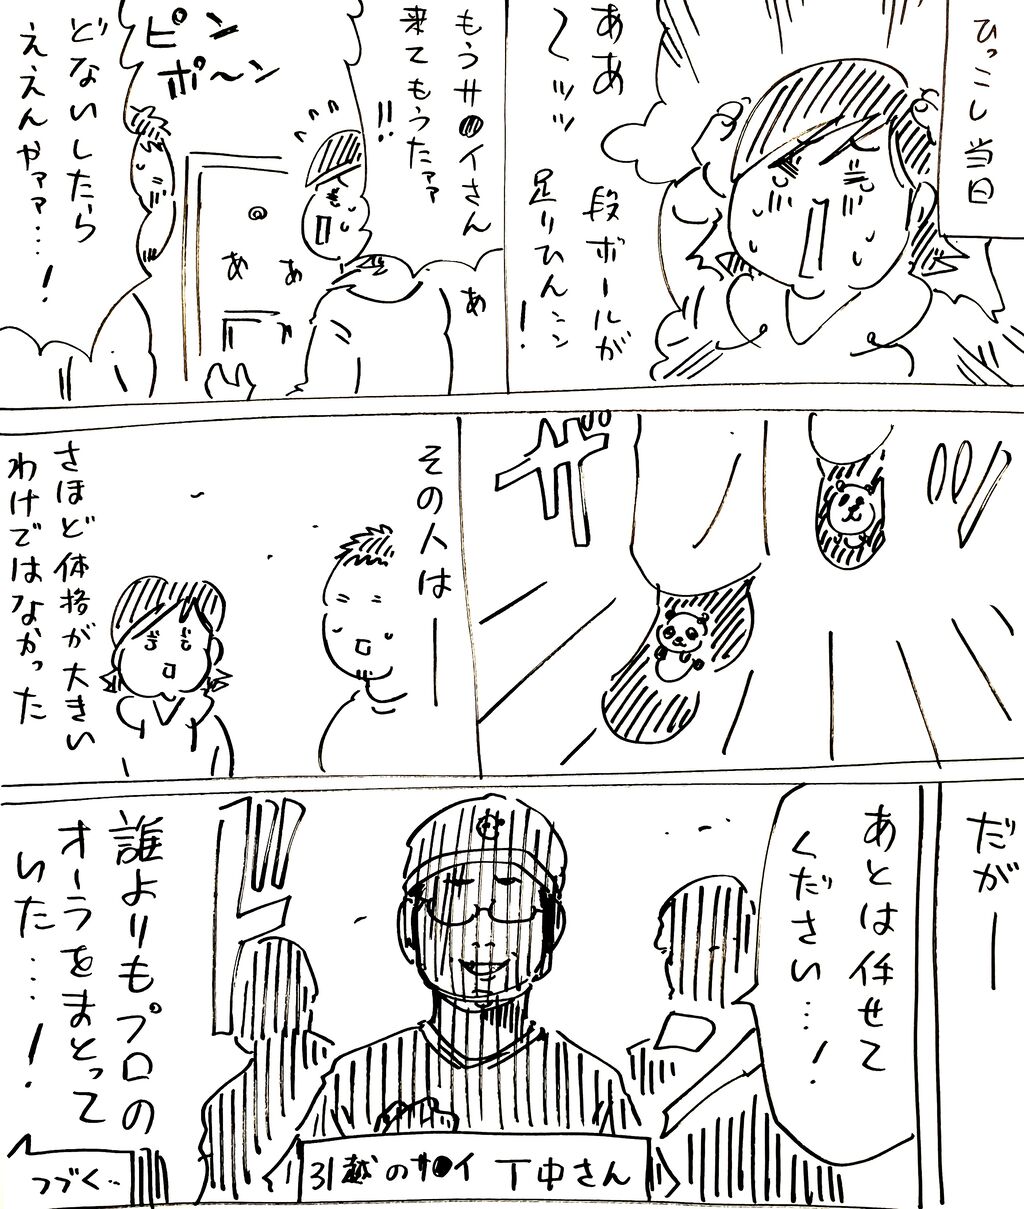 ひっこし当日
ああ
〜ッッ
段ボールが
足りひんンン
！
もうサ●イさん
来てもうたァァ
!!
ピン
ポ〜ン
どないしたら
ええんやァァ…！
あ
あ
あ
ザッ
その人は――
さほど体格が大きい
わけではなかった
だが―
あとは任せて
ください…！
ド
誰よりもプロの
オーラをまとって
いた…！
引越のサ●イ 丁中さん
つづく‥